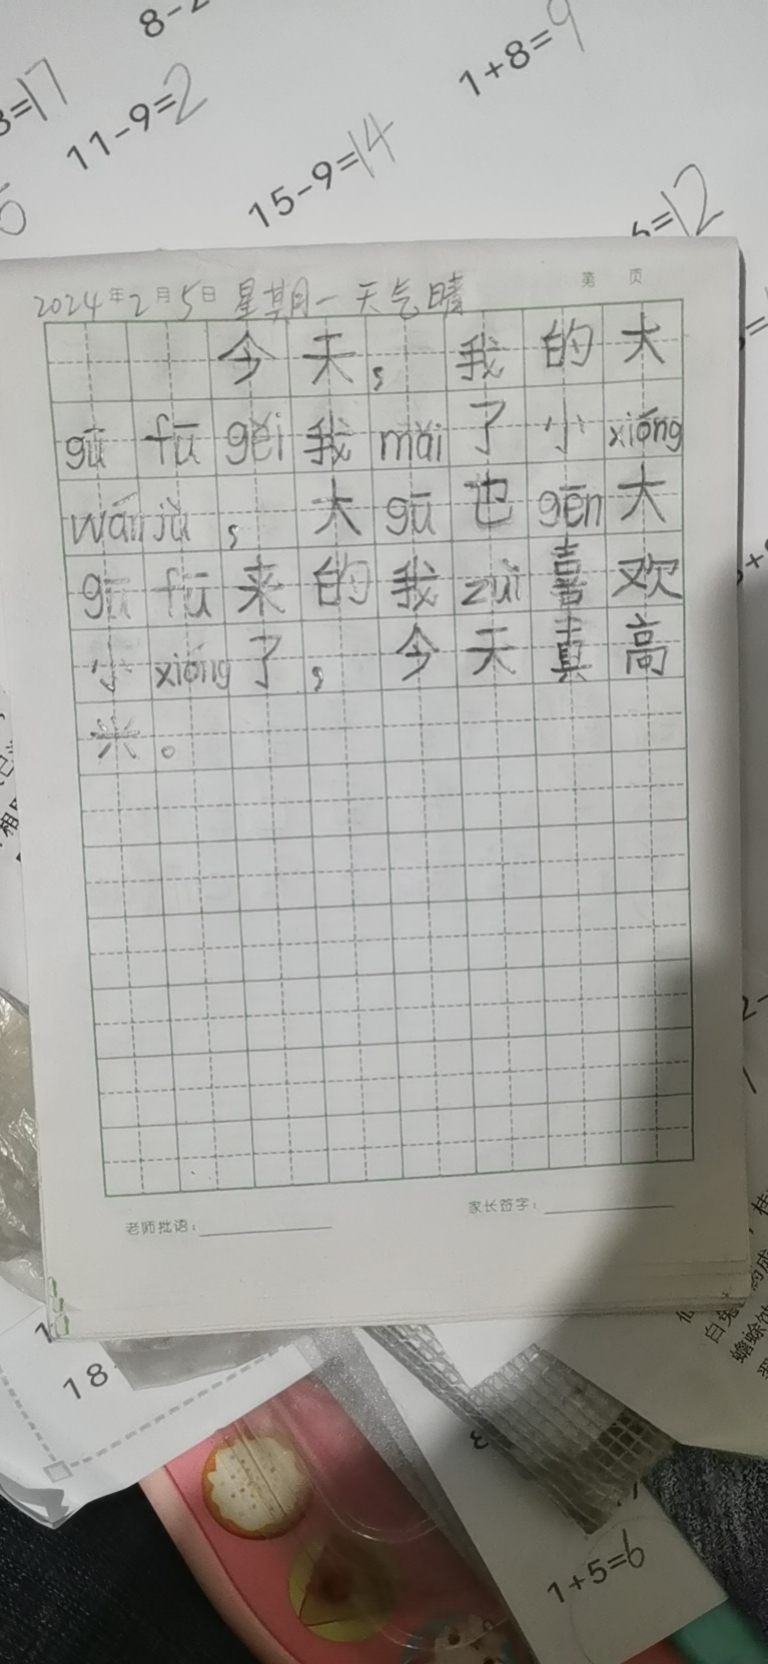 8-2
1+8=9
3=17
11-9=2
15-9=14
6=12
2024年2月5日 星期一 天气晴
第 页
今天，我的大
gū fū gěi 我 mǎi 了小 xióng
wán jù，大 gū 也 gēn 大
gū fū 来的我 zuì 喜欢
小 xióng 了，今天真高
兴。
老师批语：
家长签字：
白兔
蟾蜍
18
1+5=6